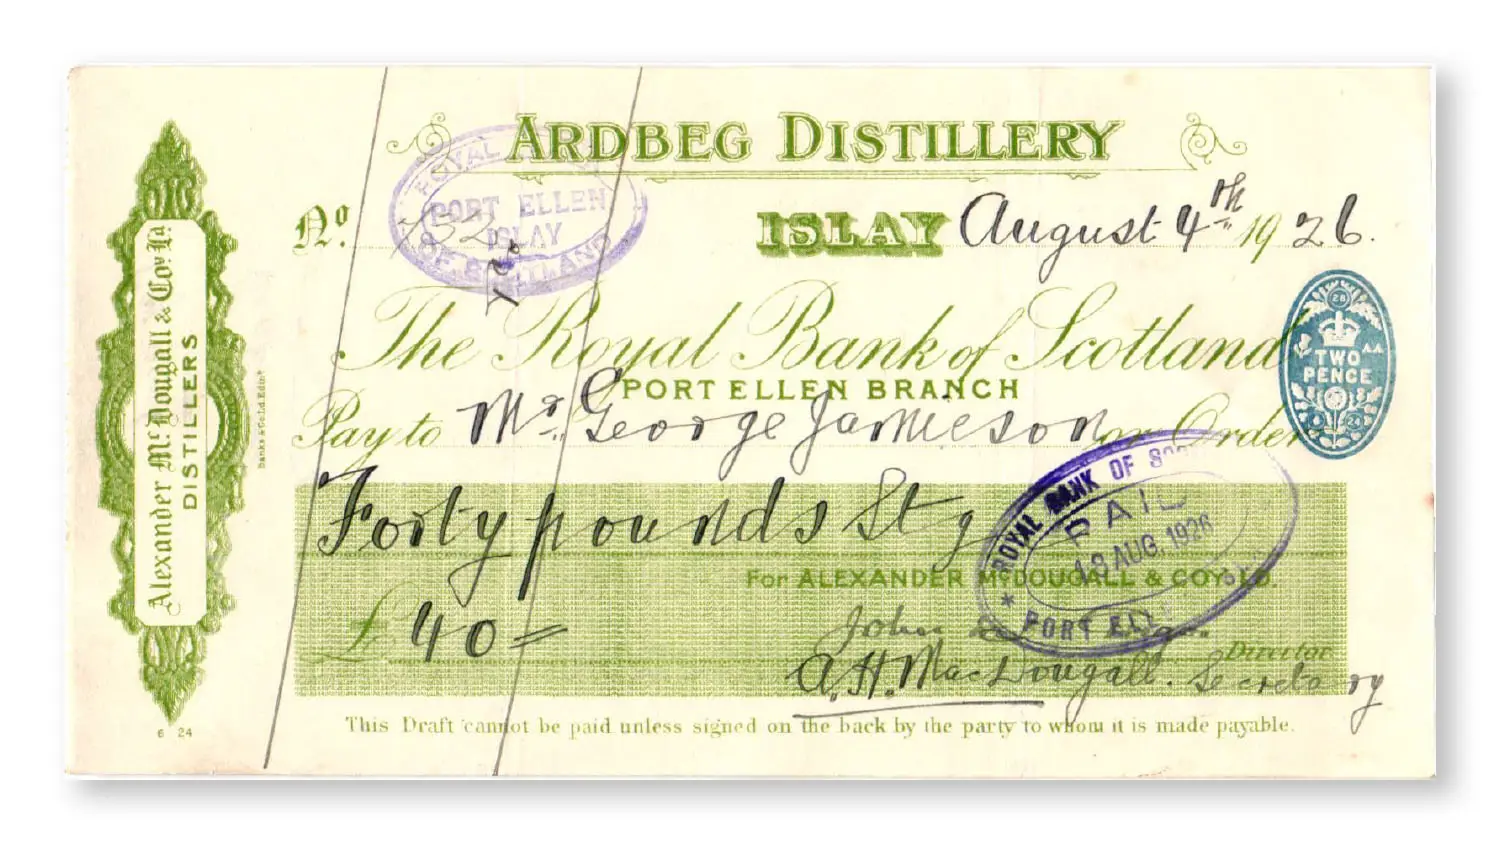 ARDBEG DISTILLERY
Nº.
ROYAL
PORT ELLEN
ISLAY
OF SCOTLAND
ISLAY August 4th 1926.
The Royal Bank of Scotland
PORT ELLEN BRANCH
TWO
PENCE
Pay to Mr. George Jamieson or Order
Forty pounds Stg
ROYAL BANK OF
PAID
18 AUG. 1926
* PORT
For ALEXANDER McDOUGALL & COY. LD.
£ 40 =
John
Director
A. H. MacDougall. Secretary
This Draft cannot be paid unless signed on the back by the party to whom it is made payable.
Alexander McDougall & Coy. Ld
DISTILLERS
Banks & Co Ld. Edinr
6 24